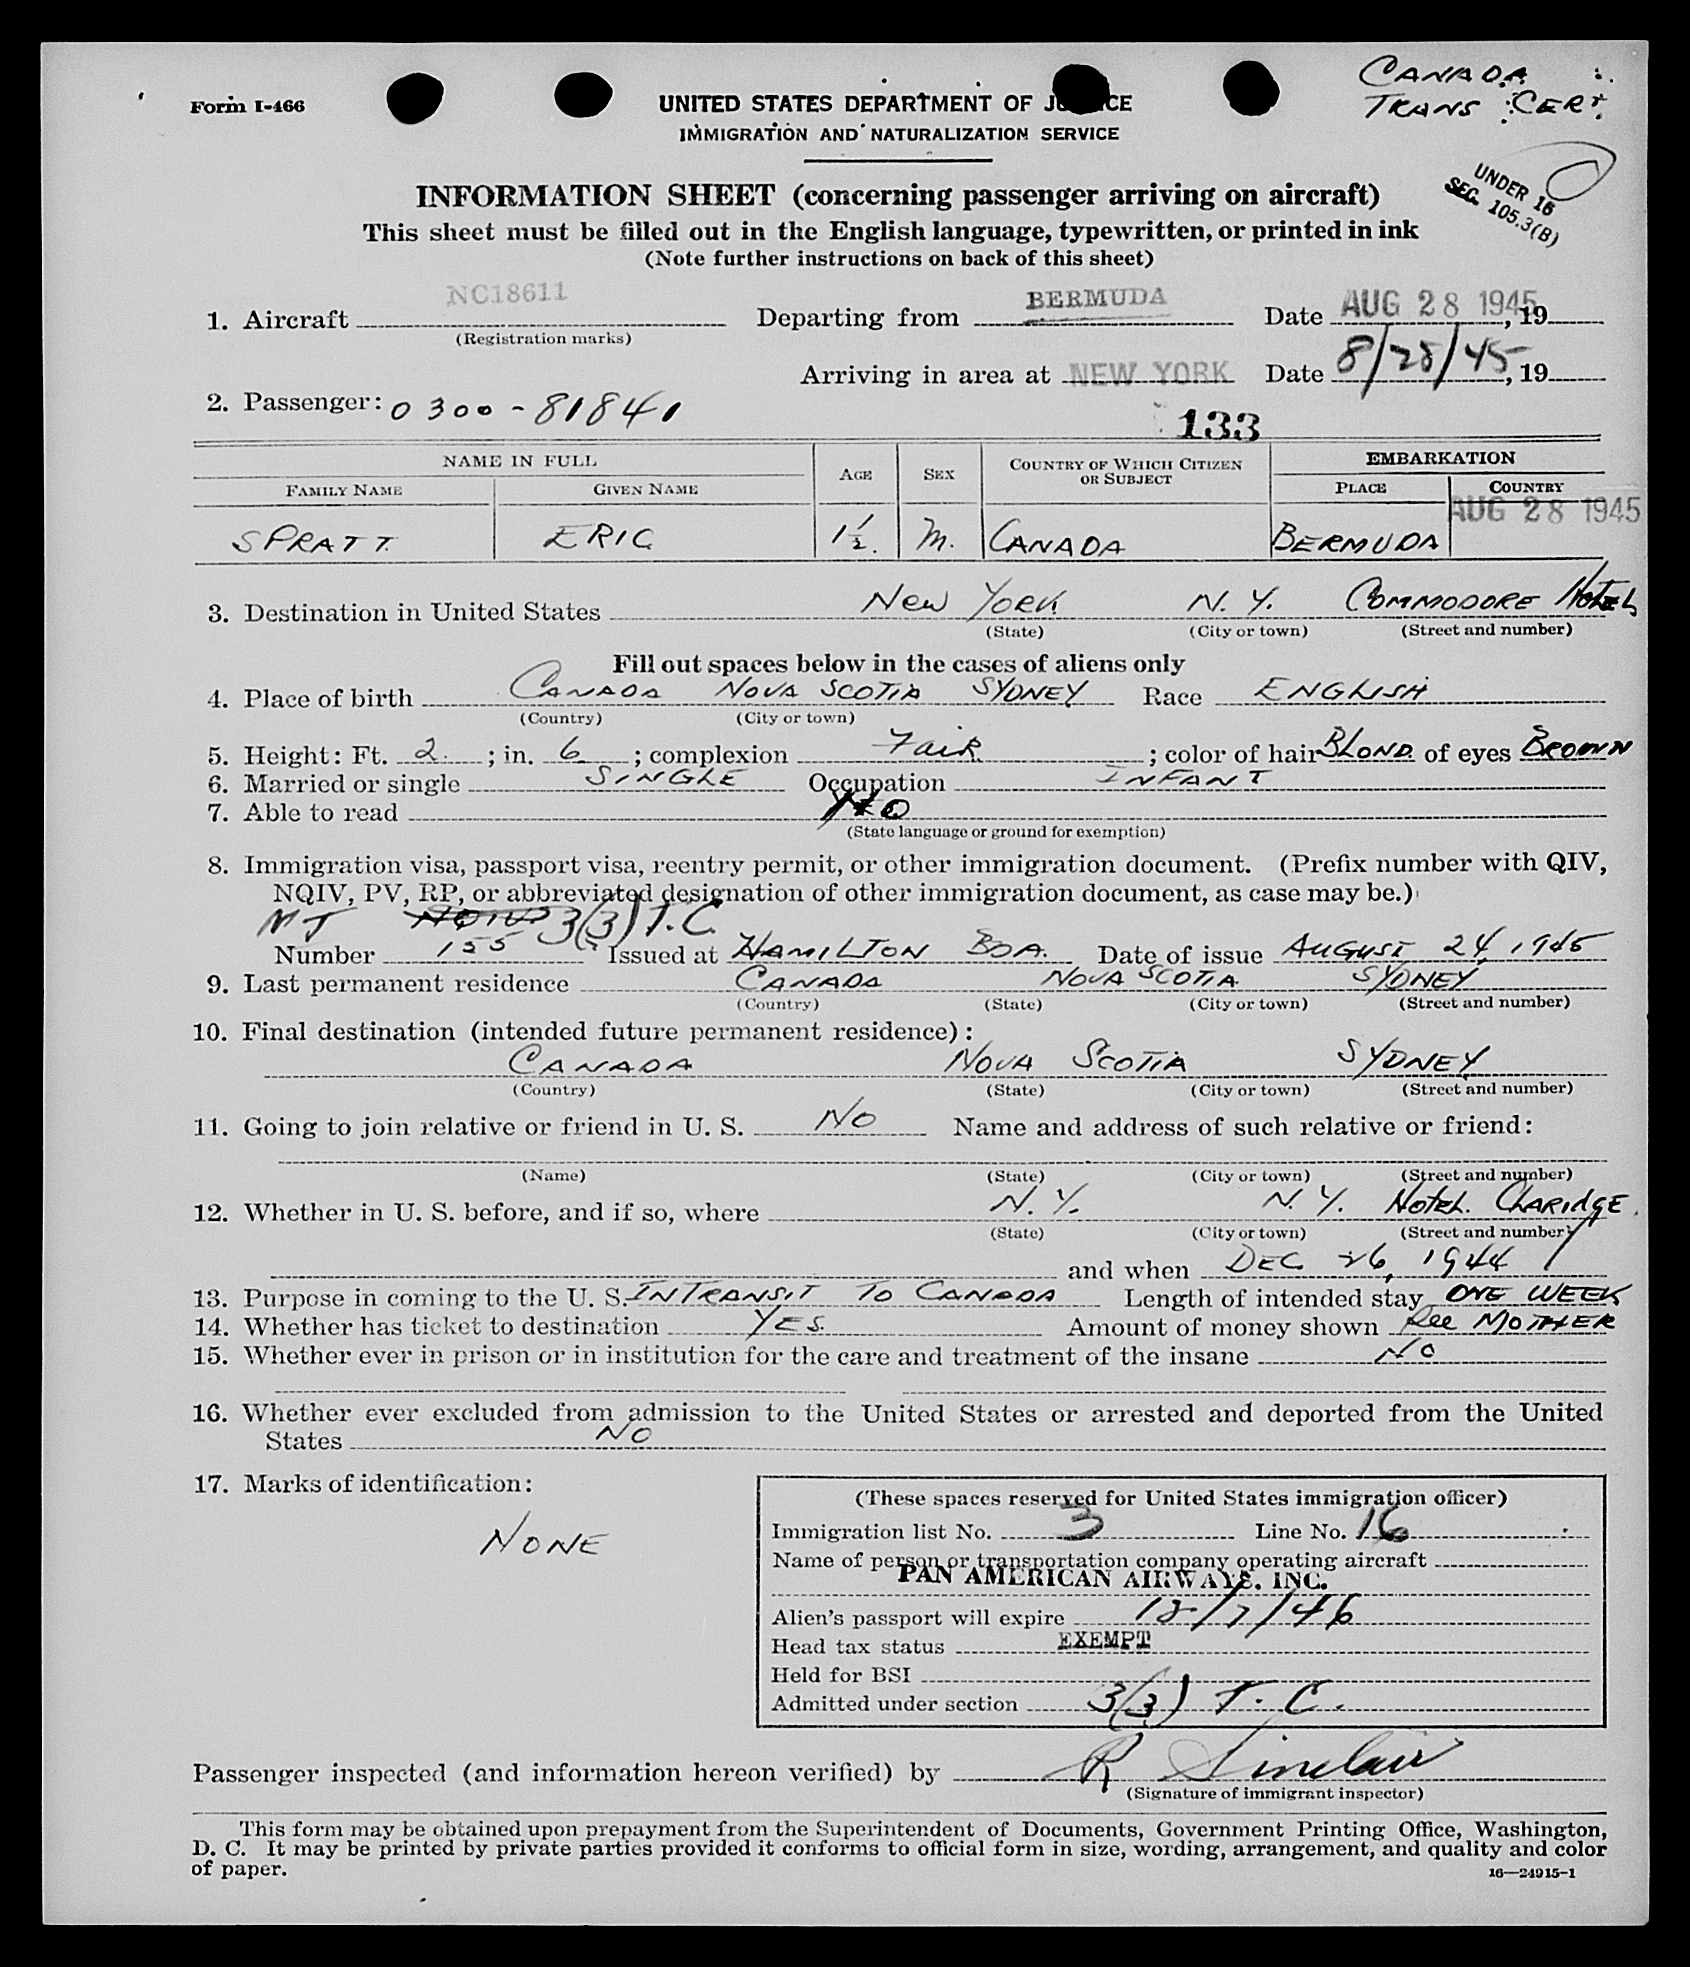 CANADA
TRANS CERT.
Form I-466
UNITED STATES DEPARTMENT OF JUSTICE
IMMIGRATION AND NATURALIZATION SERVICE
UNDER 16
SEC. 105.3(B)
INFORMATION SHEET (concerning passenger arriving on aircraft)
This sheet must be filled out in the English language, typewritten, or printed in ink
(Note further instructions on back of this sheet)
1. Aircraft NC18611 Departing from BERMUDA Date AUG 28 1945, 19
(Registration marks)
Arriving in area at NEW YORK Date 8/28/45, 19
2. Passenger: 0300-81841
133
NAME IN FULL AGE SEX COUNTRY OF WHICH CITIZEN OR SUBJECT EMBARKATION
FAMILY NAME GIVEN NAME PLACE COUNTRY
AUG 28 1945
SPRATT ERIC 1½ M. CANADA BERMUDA
3. Destination in United States New York N.Y. COMMODORE HOTEL
(State) (City or town) (Street and number)
Fill out spaces below in the cases of aliens only
4. Place of birth CANADA NOVA SCOTIA SYDNEY Race ENGLISH
(Country) (City or town)
5. Height: Ft. 2 ; in. 6 ; complexion FAIR ; color of hair BLOND of eyes BROWN
6. Married or single SINGLE Occupation INFANT
7. Able to read NO
(State language or ground for exemption)
8. Immigration visa, passport visa, reentry permit, or other immigration document. (Prefix number with QIV,
NQIV, PV, RP, or abbreviated designation of other immigration document, as case may be.)
NQIV 3(3) T.C.
Number 155 Issued at HAMILTON BDA. Date of issue AUGUST 24, 1945
9. Last permanent residence CANADA NOVA SCOTIA SYDNEY
(Country) (State) (City or town) (Street and number)
10. Final destination (intended future permanent residence):
CANADA NOVA SCOTIA SYDNEY
(Country) (State) (City or town) (Street and number)
11. Going to join relative or friend in U. S. NO Name and address of such relative or friend:
(Name) (State) (City or town) (Street and number)
12. Whether in U. S. before, and if so, where N.Y. N.Y. HOTEL CLARIDGE
(State) (City or town) (Street and number)
and when DEC 26, 1944
13. Purpose in coming to the U. S. INTRANSIT TO CANADA Length of intended stay ONE WEEK
14. Whether has ticket to destination YES. Amount of money shown MOTHER
15. Whether ever in prison or in institution for the care and treatment of the insane NO
16. Whether ever excluded from admission to the United States or arrested and deported from the United
States NO
17. Marks of identification:
NONE
(These spaces reserved for United States immigration officer)
Immigration list No. 3 Line No. 16
Name of person or transportation company operating aircraft
PAN AMERICAN AIRWAYS, INC.
Alien's passport will expire 12/7/46
Head tax status EXEMPT
Held for BSI
Admitted under section 3(3) T.C.
Passenger inspected (and information hereon verified) by R Sinclair
(Signature of immigrant inspector)
This form may be obtained upon prepayment from the Superintendent of Documents, Government Printing Office, Washington,
D. C. It may be printed by private parties provided it conforms to official form in size, wording, arrangement, and quality and color
of paper.
16—24915-1